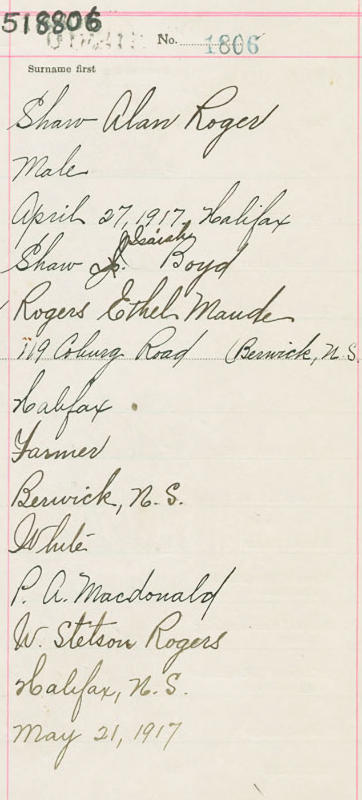 518806
No. 1806
Surname first
Shaw Alan Roger
Male
April 27, 1917, Halifax
Isaiah
Shaw Boyd
Rogers Ethel Maude
119 Coburg Road (Berwick, N.S.
Halifax
Farmer
Berwick, N.S.
White
P. A. Macdonald
W. Stetson Rogers
Halifax, N.S.
May 21, 1917